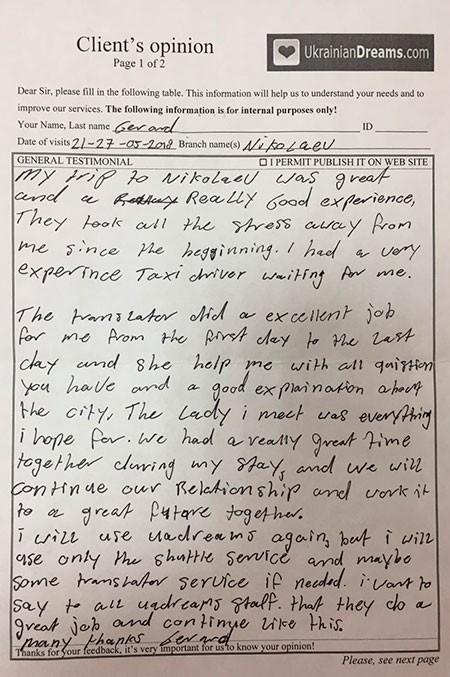 Client's opinion
Page 1 of 2
UkrainianDreams.com
Dear Sir, please fill in the following table. This information will help us to understand your needs and to
improve our services. The following information is for internal purposes only!
Your Name, Last name Gerard ID
Date of visits 21-27-05-2018 Branch name(s) Nikolaev
GENERAL TESTIMONIAL ☐ I PERMIT PUBLISH IT ON WEB SITE
My trip to Nikolaev was great
and a Really Good experience,
They took all the stress away from
me since the beggining. I had a very
experince Taxi driver waiting for me.
The translator did a excellent job
for me from the first day to the last
day and she help me with all quistion
you have and a good explaination about
the city, The Lady i meet was everything
i hope for. We had a really great time
together during my stay, and we will
continue our Relationship and work it
to a great future together.
i will use uadreams again, but i will
use only the shuttle service and maybe
some translator service if needed. i want to
say to all uadreams staff. that they do a
great job and continue like this.
many thanks Gerard
Thanks for your feedback, it's very important for us to know your opinion!
Please, see next page